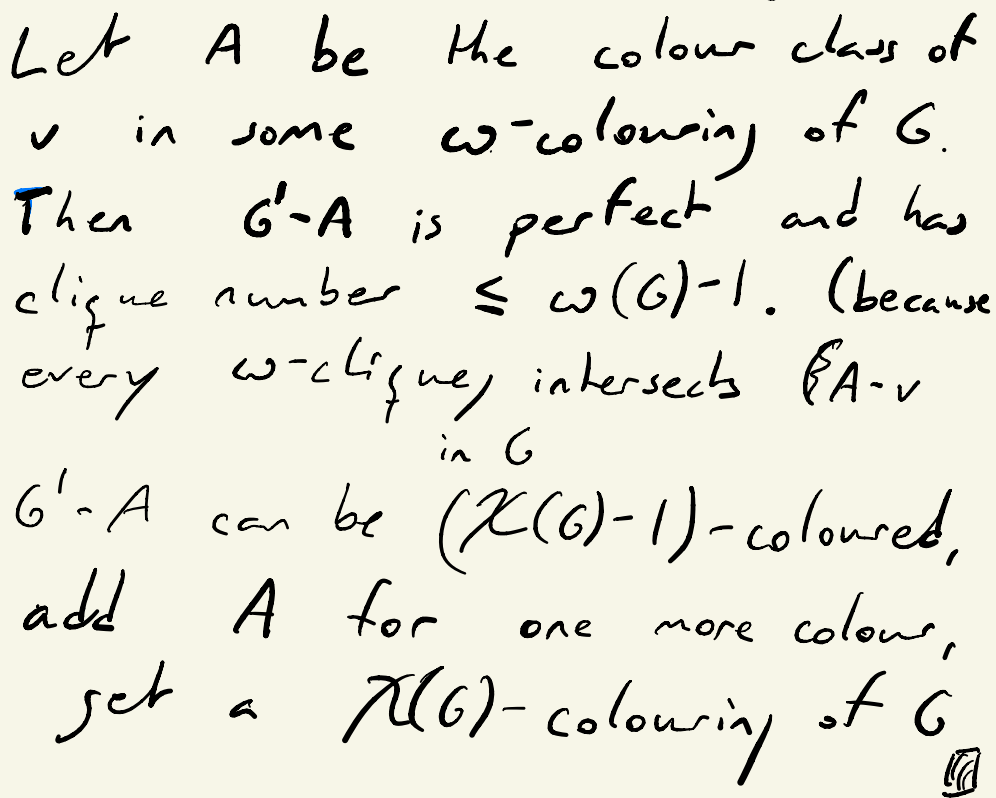 Let A be the colour class of
v in some ω-colouring of G.
Then G'-A is perfect and has
clique number ≤ ω(G)-1. (because
every ω-clique, intersects A-v
in G
G'-A can be (χ(G)-1)-coloured,
add A for one more colour,
get a χ(G)-colouring of G